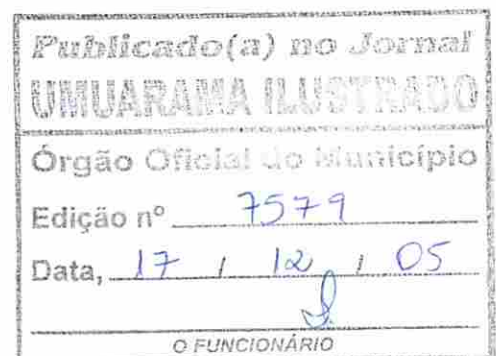 Publicado(a) no Jornal
UMUARAMA ILUSTRADO
Órgão Oficial do Município
Edição nº 7579
Data, 17 / 12 / 05
O FUNCIONÁRIO